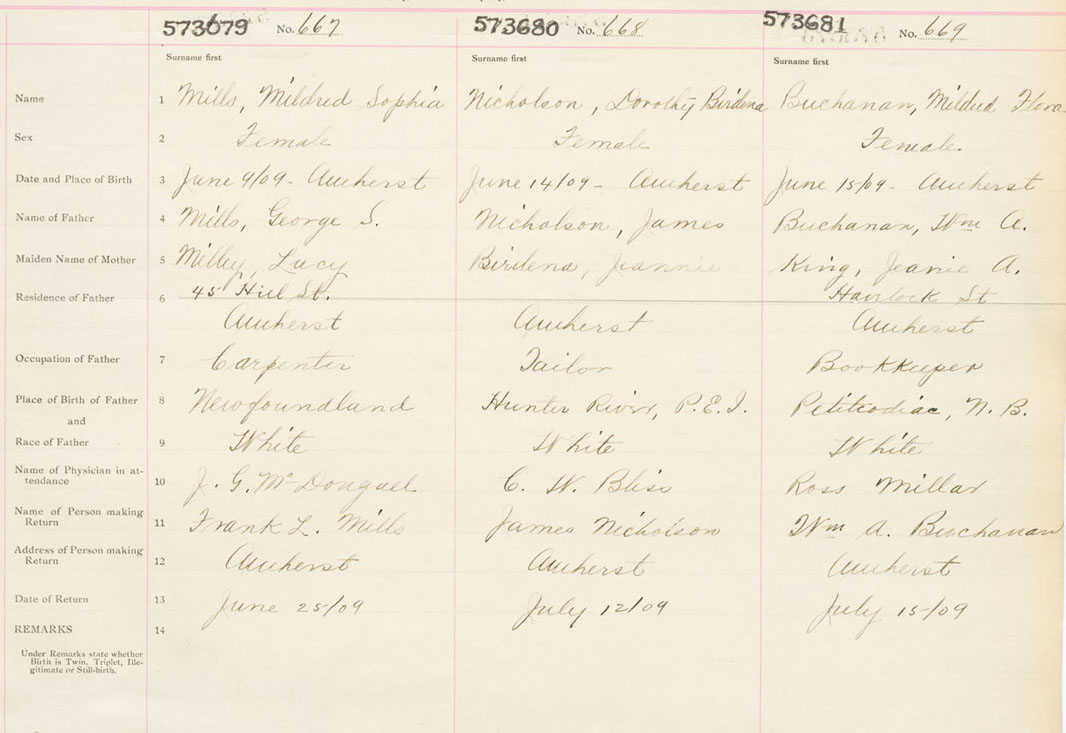 573679 No. 667 573680 No. 668 573681 No. 669
Surname first Surname first Surname first
Name 1 Mills, Mildred Sophia Nicholson, Dorothy Birdena Buchanan, Mildred Flora
Sex 2 Female Female Female
Date and Place of Birth 3 June 9/09 - Amherst June 14/09 - Amherst June 15/09 - Amherst
Name of Father 4 Mills, George S. Nicholson, James Buchanan, Wm A.
Maiden Name of Mother 5 Milley, Lucy Birdena, Jeannie King, Jeanie A.
Residence of Father 6 45 Hill St. Havlock St
Amherst Amherst Amherst
Occupation of Father 7 Carpenter Tailor Bookkeeper
Place of Birth of Father 8 Newfoundland Hunter River, P.E.I. Petitcodiac, N.B.
and
Race of Father 9 White White White
Name of Physician in at-
tendance 10 J. G. McDougall C. W. Bliss Ross Millar
Name of Person making
Return 11 Frank L. Mills James Nicholson Wm A. Buchanan
Address of Person making
Return 12 Amherst Amherst Amherst
Date of Return 13 June 25/09 July 12/09 July 15/09
REMARKS 14
Under Remarks state whether
Birth is Twin, Triplet, Ille-
gitimate or Still-birth.